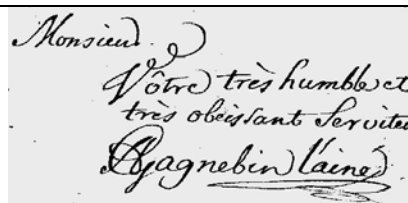 Monsieur.
Vôtre très humble et
très obéissant Servite
AGagnebin l'ainé